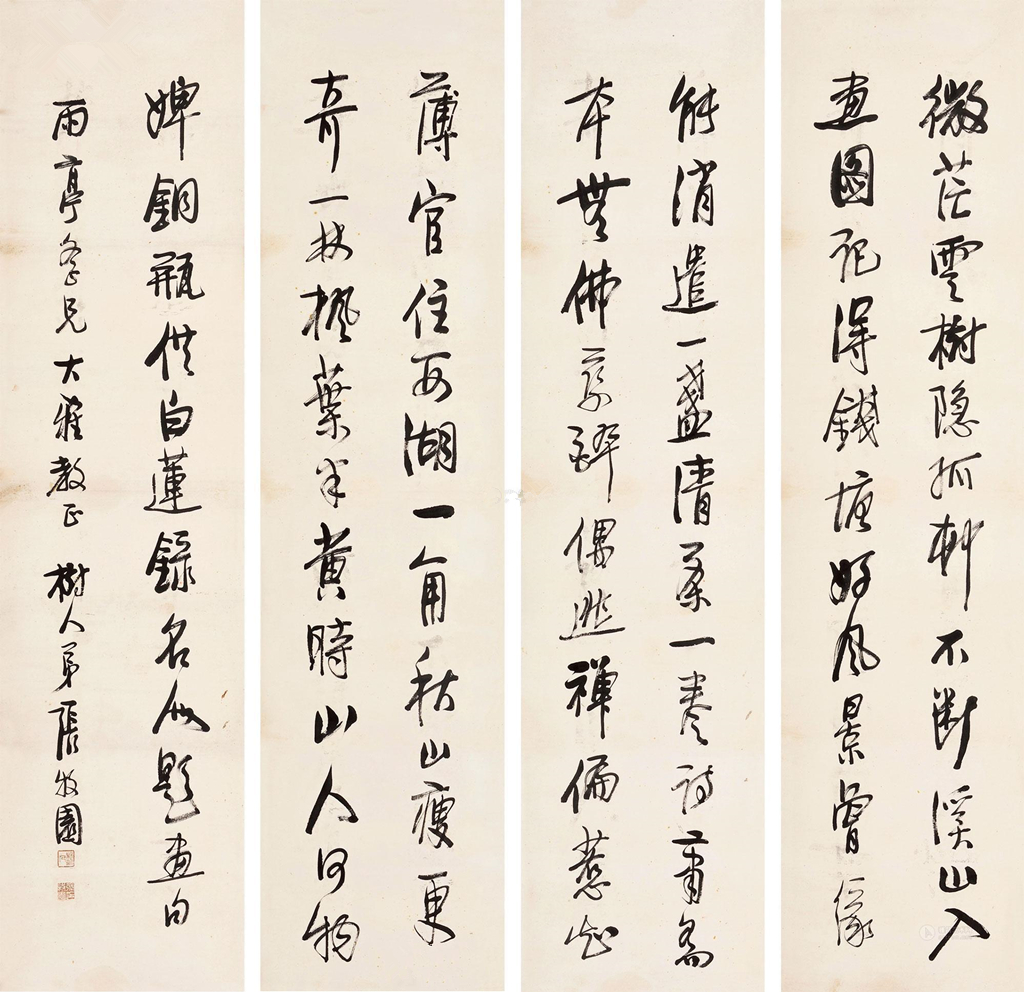 微茫雲樹隱孤村不斷溪山入
畫圖記得錢塘好風景曾
能消遣一盞清茶一卷詩蕭齋
本無佛學醉偶逃禪偏惹
薄官住西湖一角秋山瘦更
奇一林楓葉半黃時山人何物
婢銅瓶供白蓮錄名人題畫句
雨亭仁兄大雅教正 樹人弟張牧園